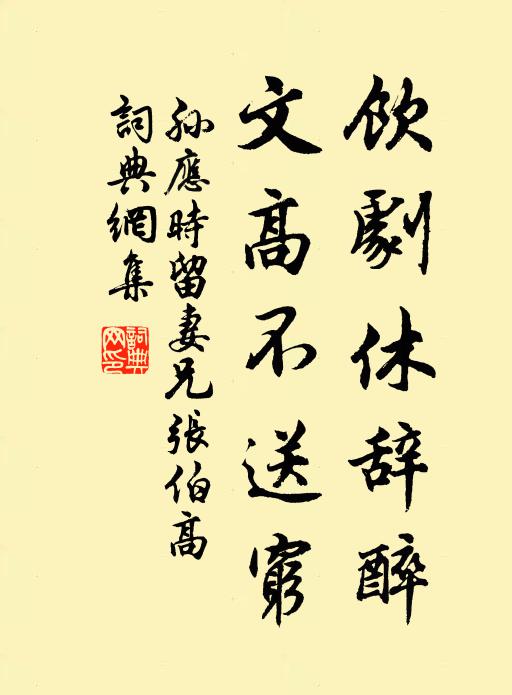 飲劇休辞醉
文高不送窮
孫應時留妻兄張伯高
詞典網集
詞典网印